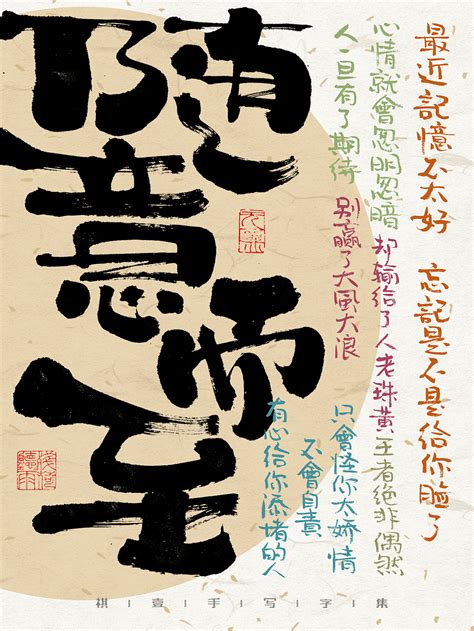 隨意而至
最近記憶不太好 忘記是不是給你臉了
心情就會忽明忽暗
人一旦有了期待
却輸給了人老珠黃
别贏了大風大浪
王者絕非偶然
只會怪你太嬌情
不會自責
有心給你添堵的人
祺|壹|手|写|字|集